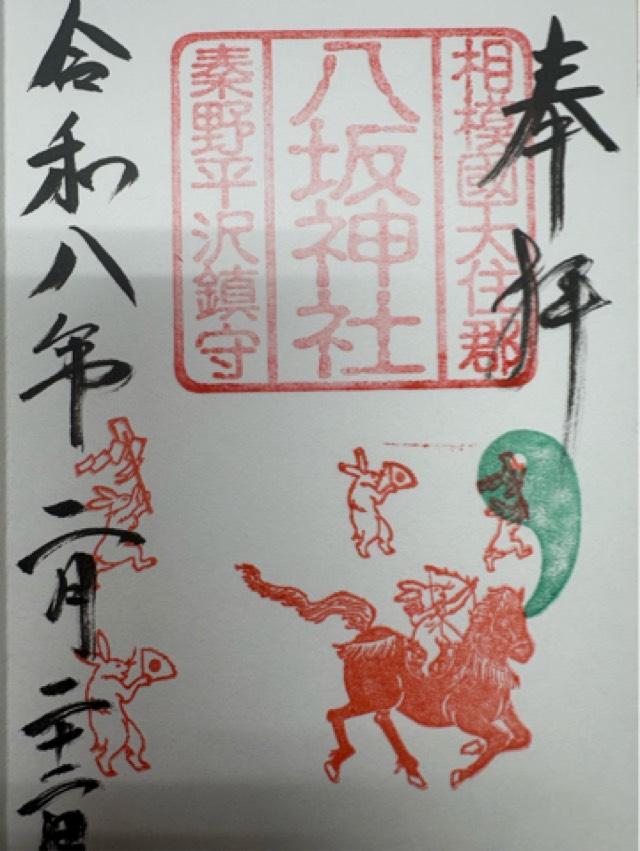 奉拝
相模國大住郡
八坂神社
秦野平沢鎮守
令和八年二月二十二日